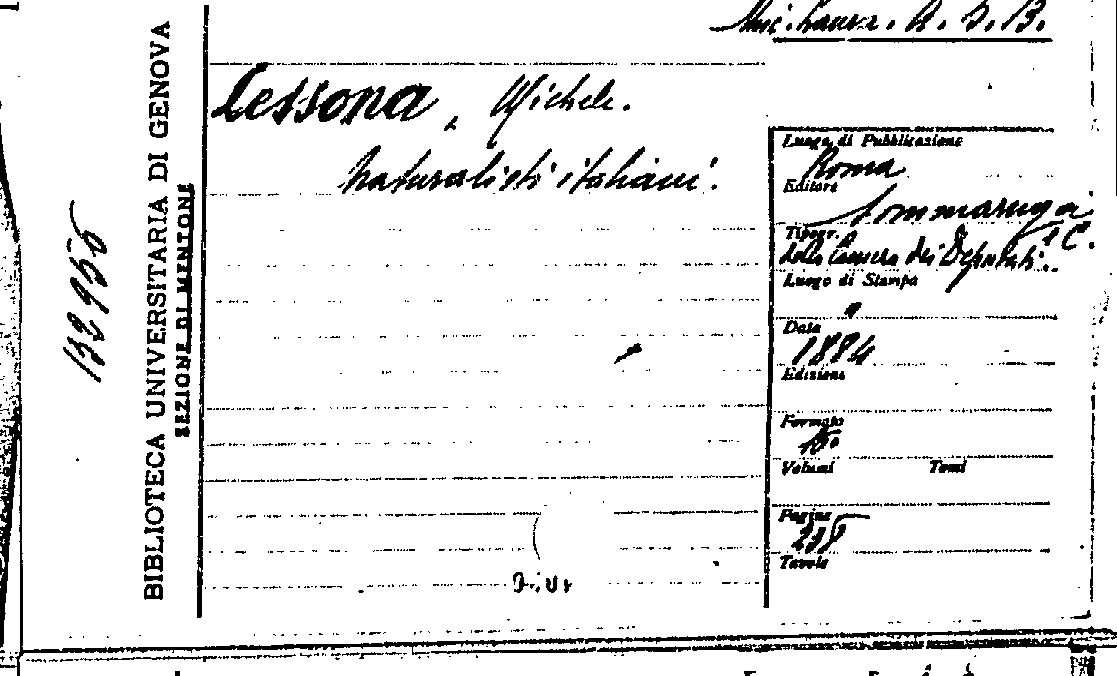 BIBLIOTECA UNIVERSITARIA DI GENOVA
SEZIONE DI MENTONE
132955
A. S. B.
Lessona, Michele.
Naturalisti italiani.
Luogo di Pubblicazione
Roma
Editore
Sommaruga
e C.
Tipogr.
della Camera dei Deputati.
Luogo di Stampa
Data
1884
Edizione
Formato
Volumi Tomi
Pagine
218
Tavole